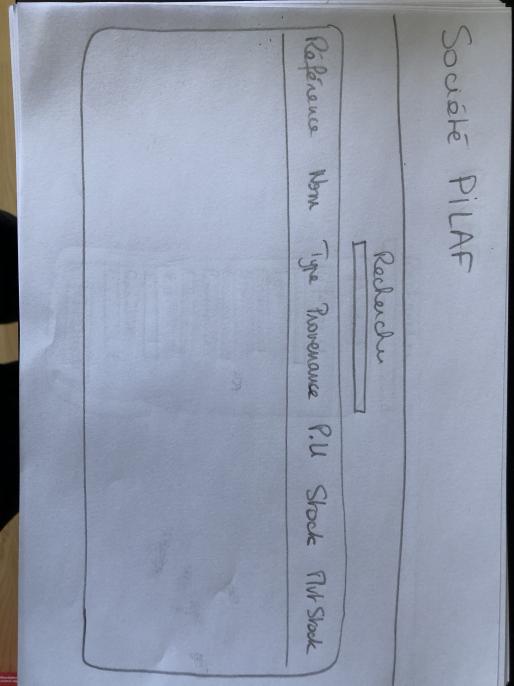 Société PiLAF
Recherche
Référence Nom Type Provenance P.U Stock Mvt Stock